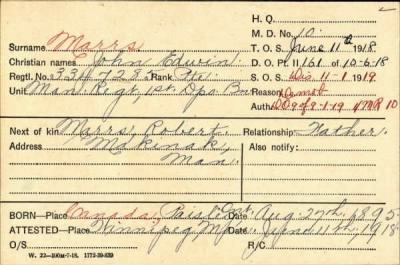 H. Q.
M. D. No. 10.
Surname Marrs
T. O. S. June 11th 1918
Christian names John Edwin.
D. O. Pt. II 161 of 10-6-18
Regtl. No. 3347285 Rank Pte.
S. O. S. Dis. 11-1 1919
Unit Man. Regt, 1st. Dpo. Bn
Reason Demob
Auth. DO 9 of 9-1-19 10
Next of kin Marrs, Robert.
Relationship Father.
Address Makinak,
Also notify:
Man.
BORN—Place Canada, Paisley Ont. Date Aug. 27th, 1895
ATTESTED—Place Winnipeg, Man. Date June 11th, 1918
O/S
R/C
W. 22—100M-7-18. 1772-39-839